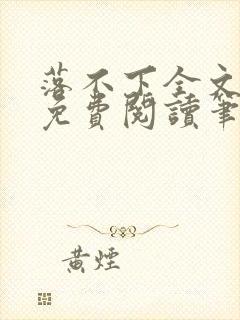 落不下全文
免費閱讀筆
黃煙